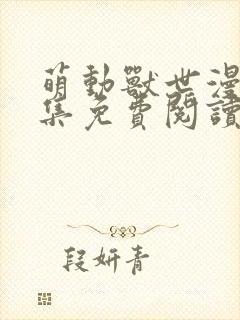 萌動獸世漫
集免費閱讀
段妍青